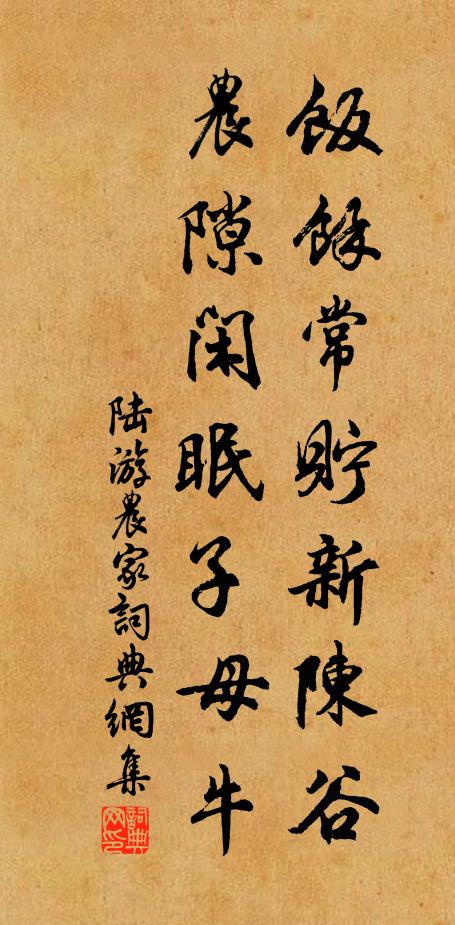 飯餘常貯新陳谷
農隙閑眠子母牛
陸游農家詞典網集
詞典網印